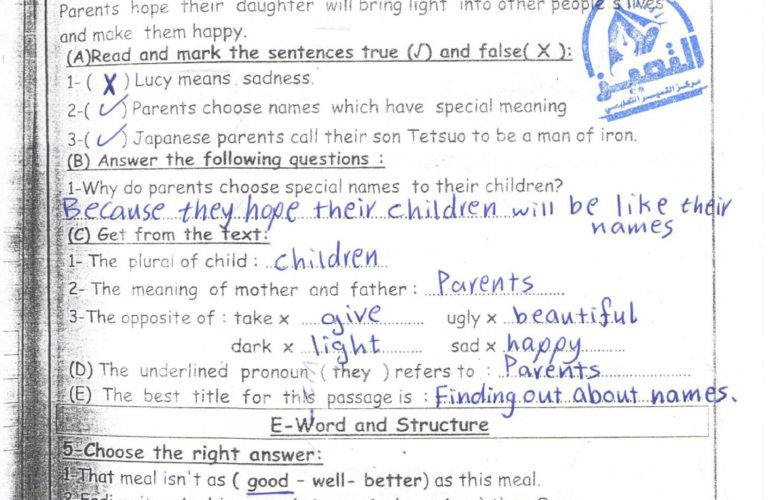 Parents hope their daughter will bring light into other people's lives
and make them happy.
(A)Read and mark the sentences true (√) and false( X ):
1- ( X ) Lucy means sadness.
2-( ✓ ) Parents choose names which have special meaning
3-( ✓ ) Japanese parents call their son Tetsuo to be a man of iron.
(B) Answer the following questions :
1-Why do parents choose special names to their children?
Because they hope their children will be like their
names
(C) Get from the text:
1- The plural of child : children
2- The meaning of mother and father : Parents
3-The opposite of : take × give ugly × beautiful
dark × light sad × happy
(D) The underlined pronoun ( they ) refers to : Parents
(E) The best title for this passage is : Finding out about names.
E-Word and Structure
5-Choose the right answer:
1-That meal isn't as ( good - well- better) as this meal.
التميز
مركز التميز التعليمي